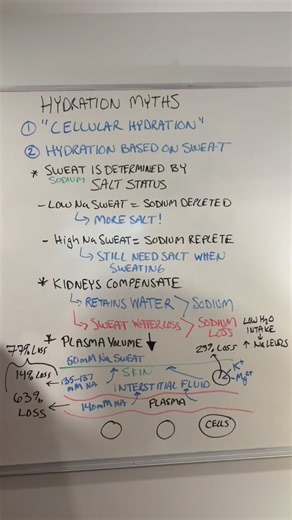 HYDRATION MYTHS
① "CELLULAR HYDRATION"
② HYDRATION BASED ON SWEAT
* SWEAT IS DETERMINED BY
SODIUM SALT STATUS
- LOW Na SWEAT = SODIUM DEPLETED
↳ MORE SALT!
- HIGH Na SWEAT = SODIUM REPLETE
↳ STILL NEED SALT WHEN
SWEATING
* KIDNEYS COMPENSATE
↳ RETAINS WATER > SODIUM
↳ SWEAT WATER LOSS > SODIUM
LOSS
LOW H2O
INTAKE
↓
↑ Na LEVELS
* PLASMA VOLUME ↓
77% LOSS
60mM Na SWEAT
23% LOSS
14% LOSS
SKIN
K+
Mg2+
135-137
mM NA
INTERSTITIAL FLUID
63%
LOSS
140mM NA
PLASMA
CELLS